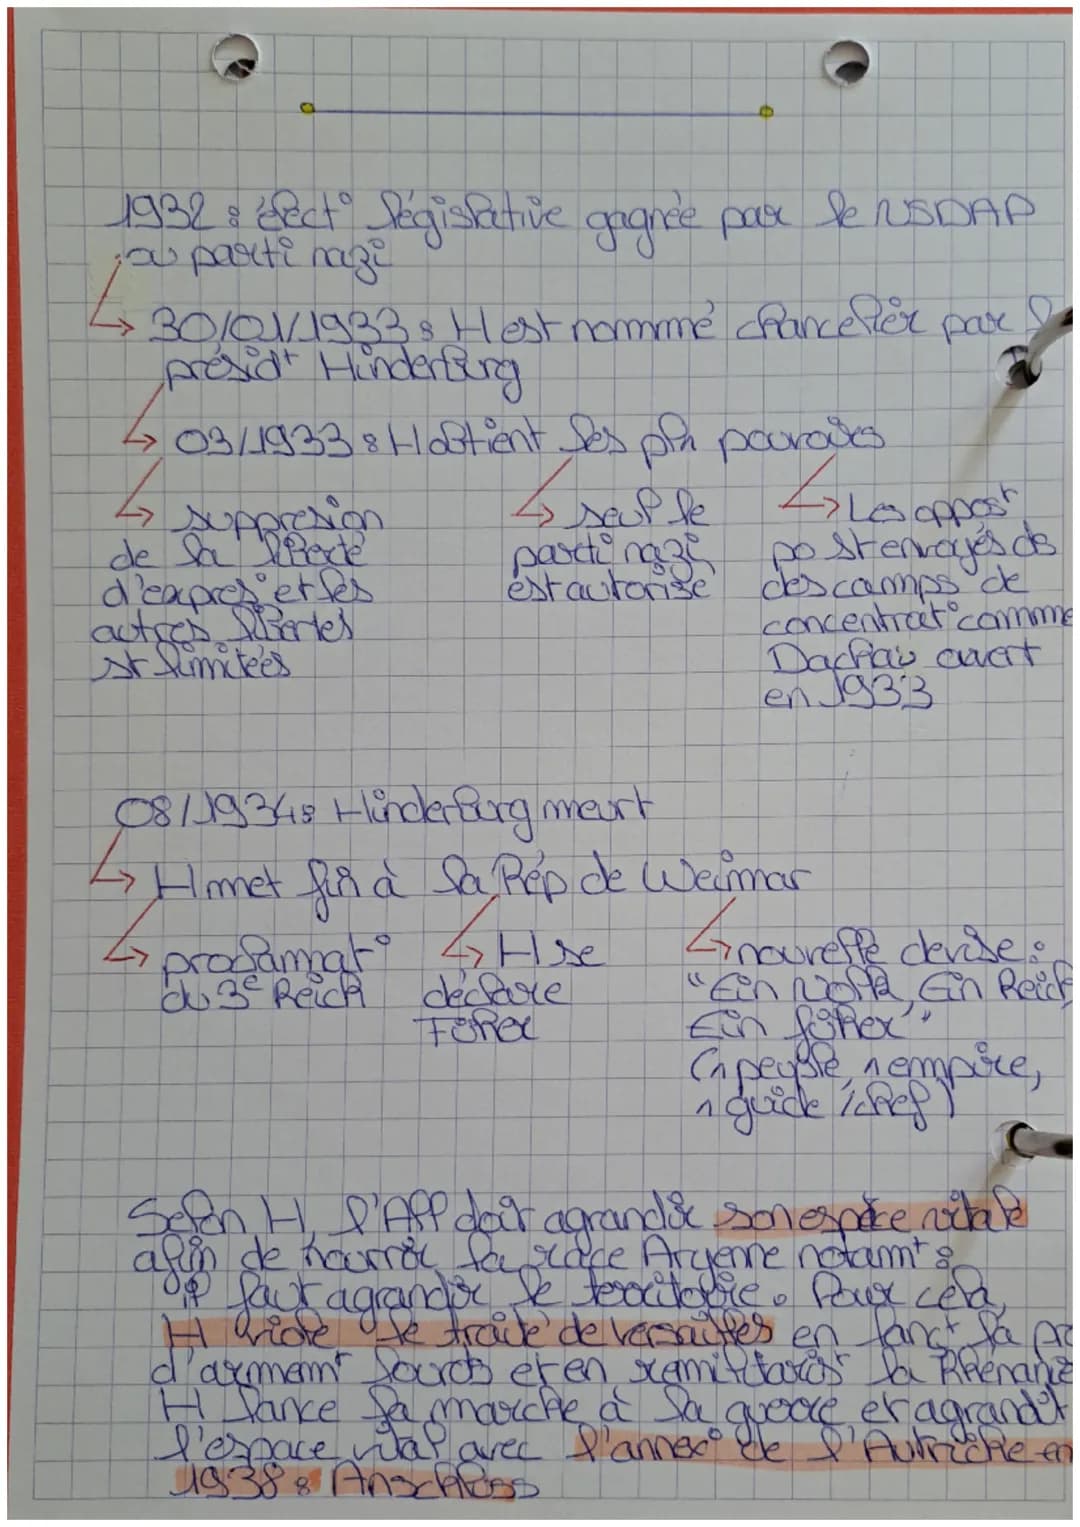 1932 : élect° législative gagnée par le NSDAP
ou parti nazi
↳ 30/01/1933 : H est nommé chancelier par l
présidt Hinderburg
↳ 03/1933 : H obtient les pln pouvoirs
↳ suppresion
de la liberté
d'expres° et les
autres libertés
st limitées
↳ seul le
parti nazi
est autorisé
↳ Les oppost
po st envoyés ds
des camps de
concentrat° comme
Dachau ouvert
en 1933
08/1934 : Hinderburg meurt
↳ H met fin à la Rép de Weimar
↳ proclamat°
du 3e Reich
↳ H se
déclare
Fürher
↳ nouvelle devise :
"Ein Volk, Ein Reich
Ein fürher"
(1 peuple, 1 empire,
1 guide / chef)
Selon H, l'All doit agrandir son espace vitale
afin de nourrir la race Aryenne notamt :
il faut agrandir le territoire. Pour cela,
H viole le traité de versailles en lançt la pr
d'armemt lourds et en remilitarist la Rhénanie
H lance la marche à la guerre et agrandit
l'espace vital avec l'annex° de l'Autriche en
1938 : Anschloss